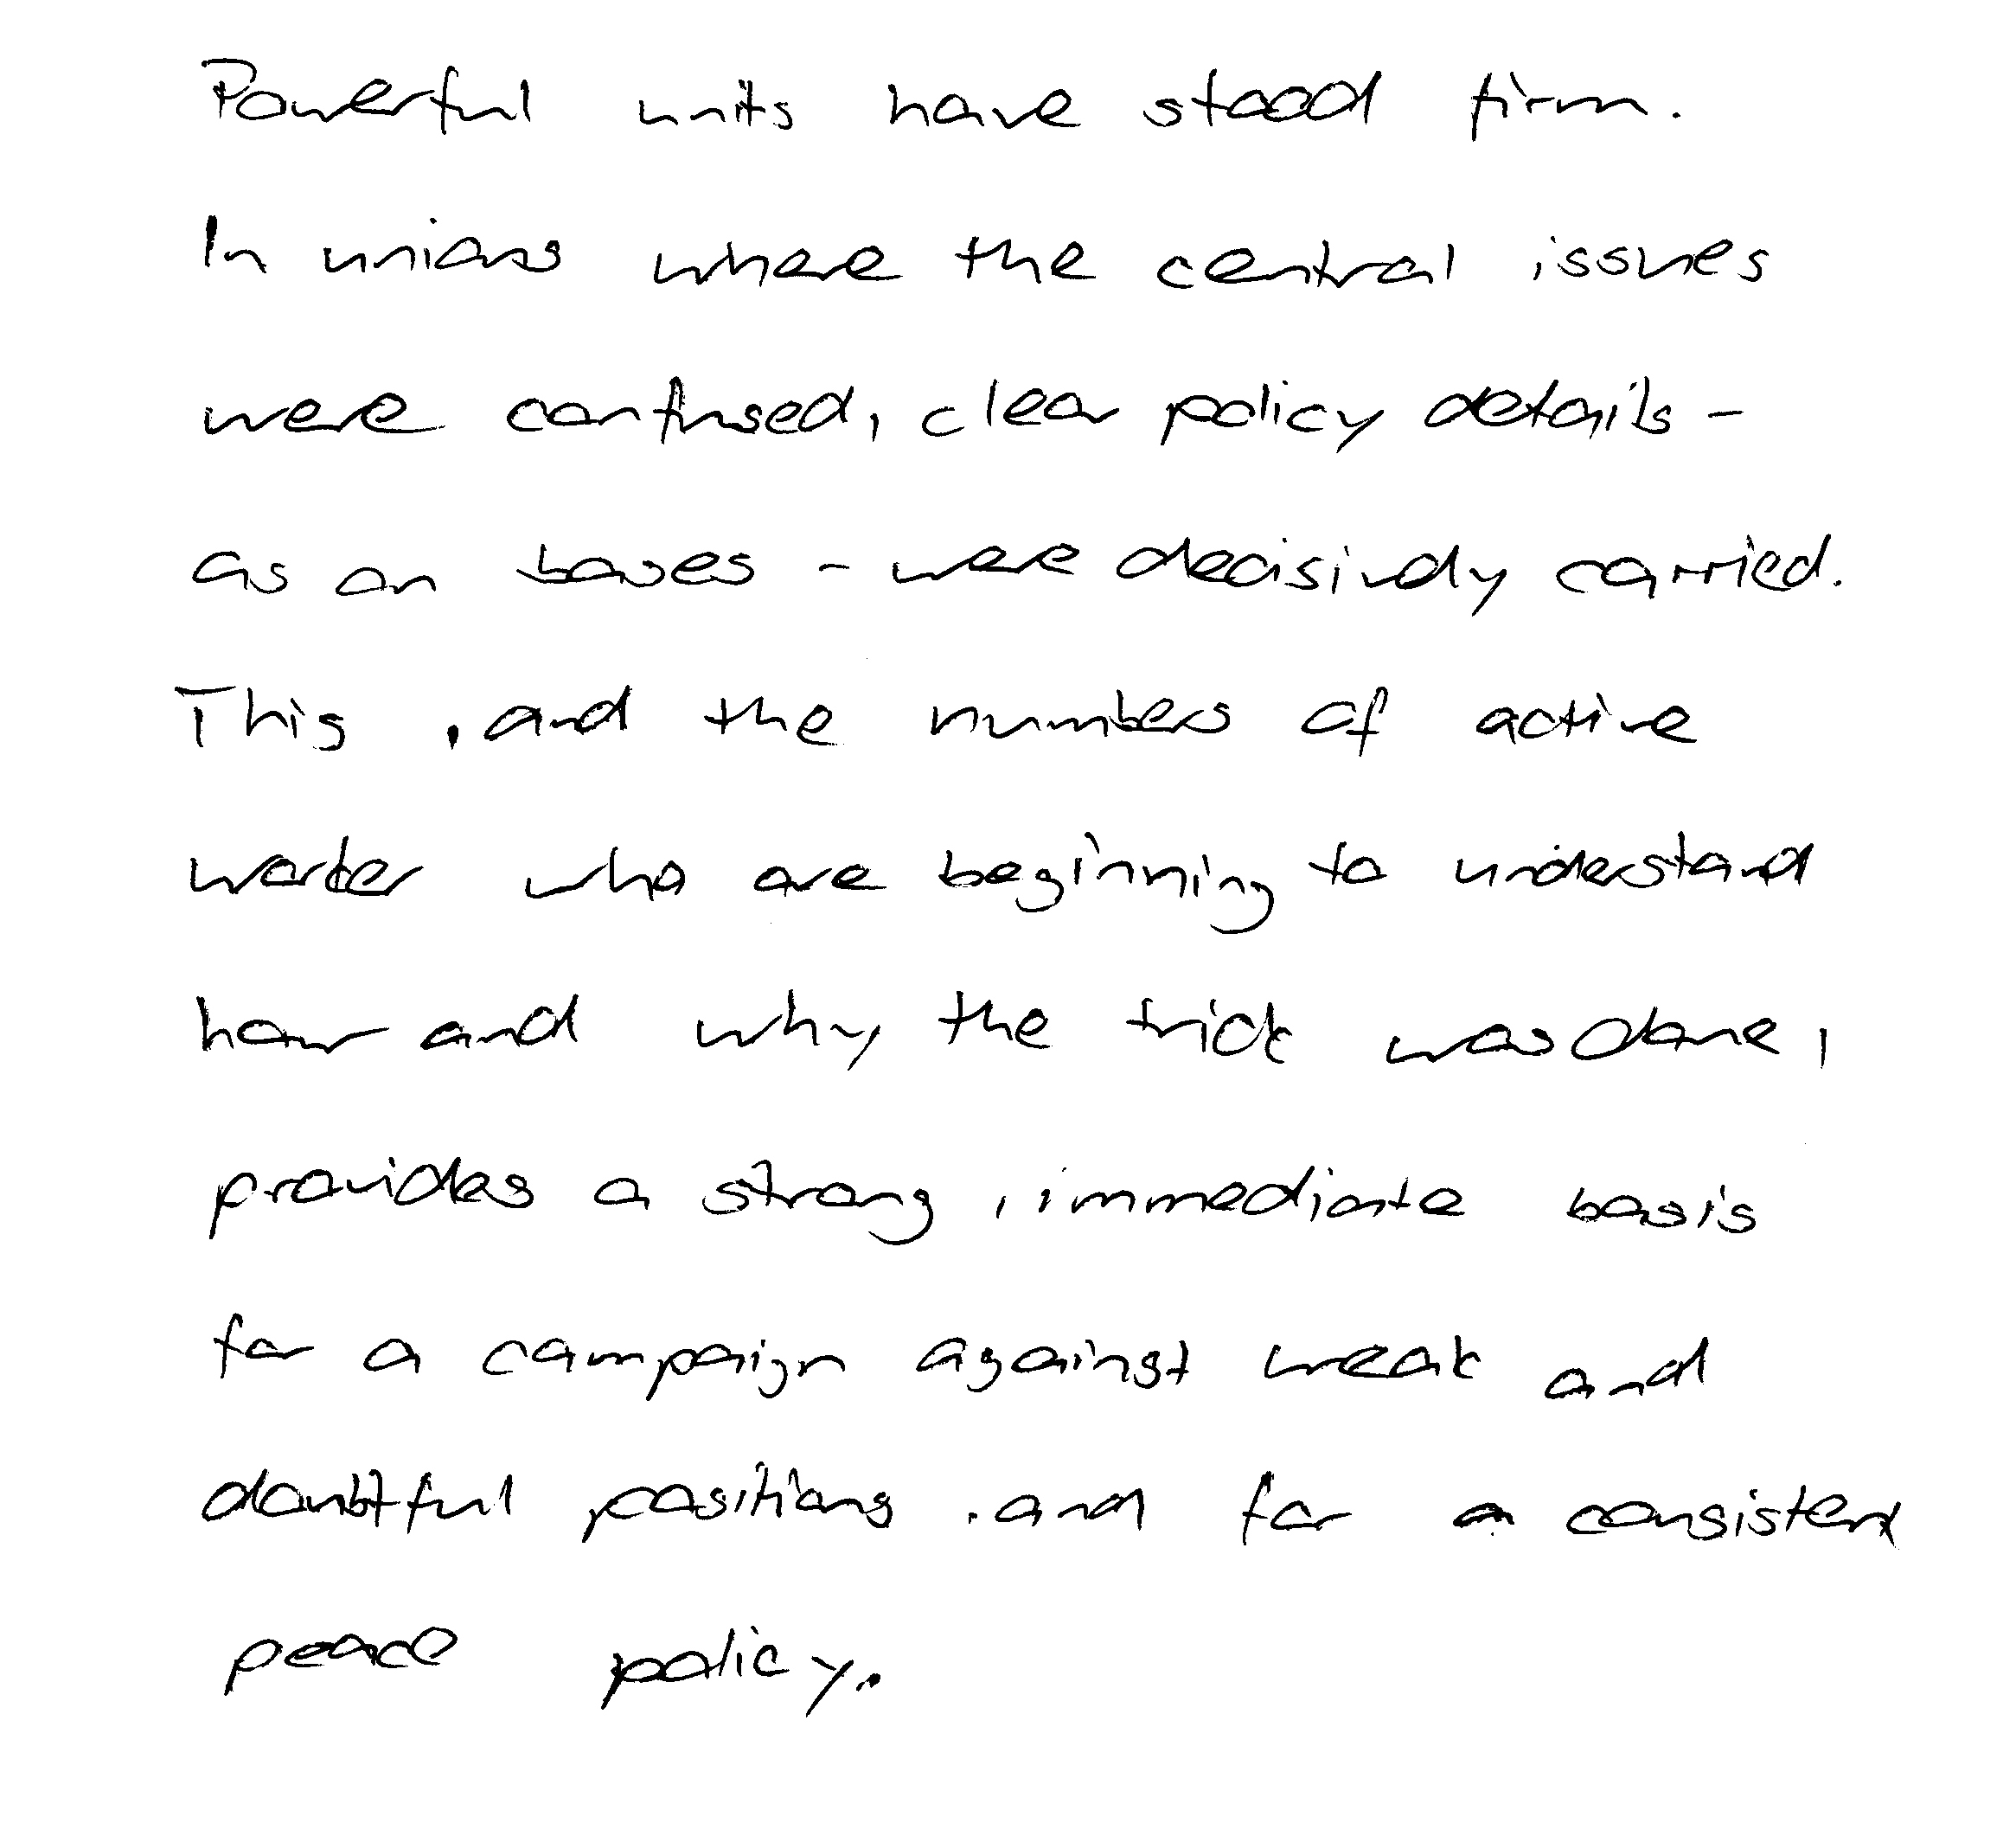 Powerful units have stood firm.
In unions where the central issues
were confused, clear policy details -
as on bases - were decisively carried.
This , and the numbers of active
worker who are beginning to understand
how and why the trick was done ,
provides a strong , immediate basis
for a campaign against weak and
doubtful positions . and for a consistent
peace policy.